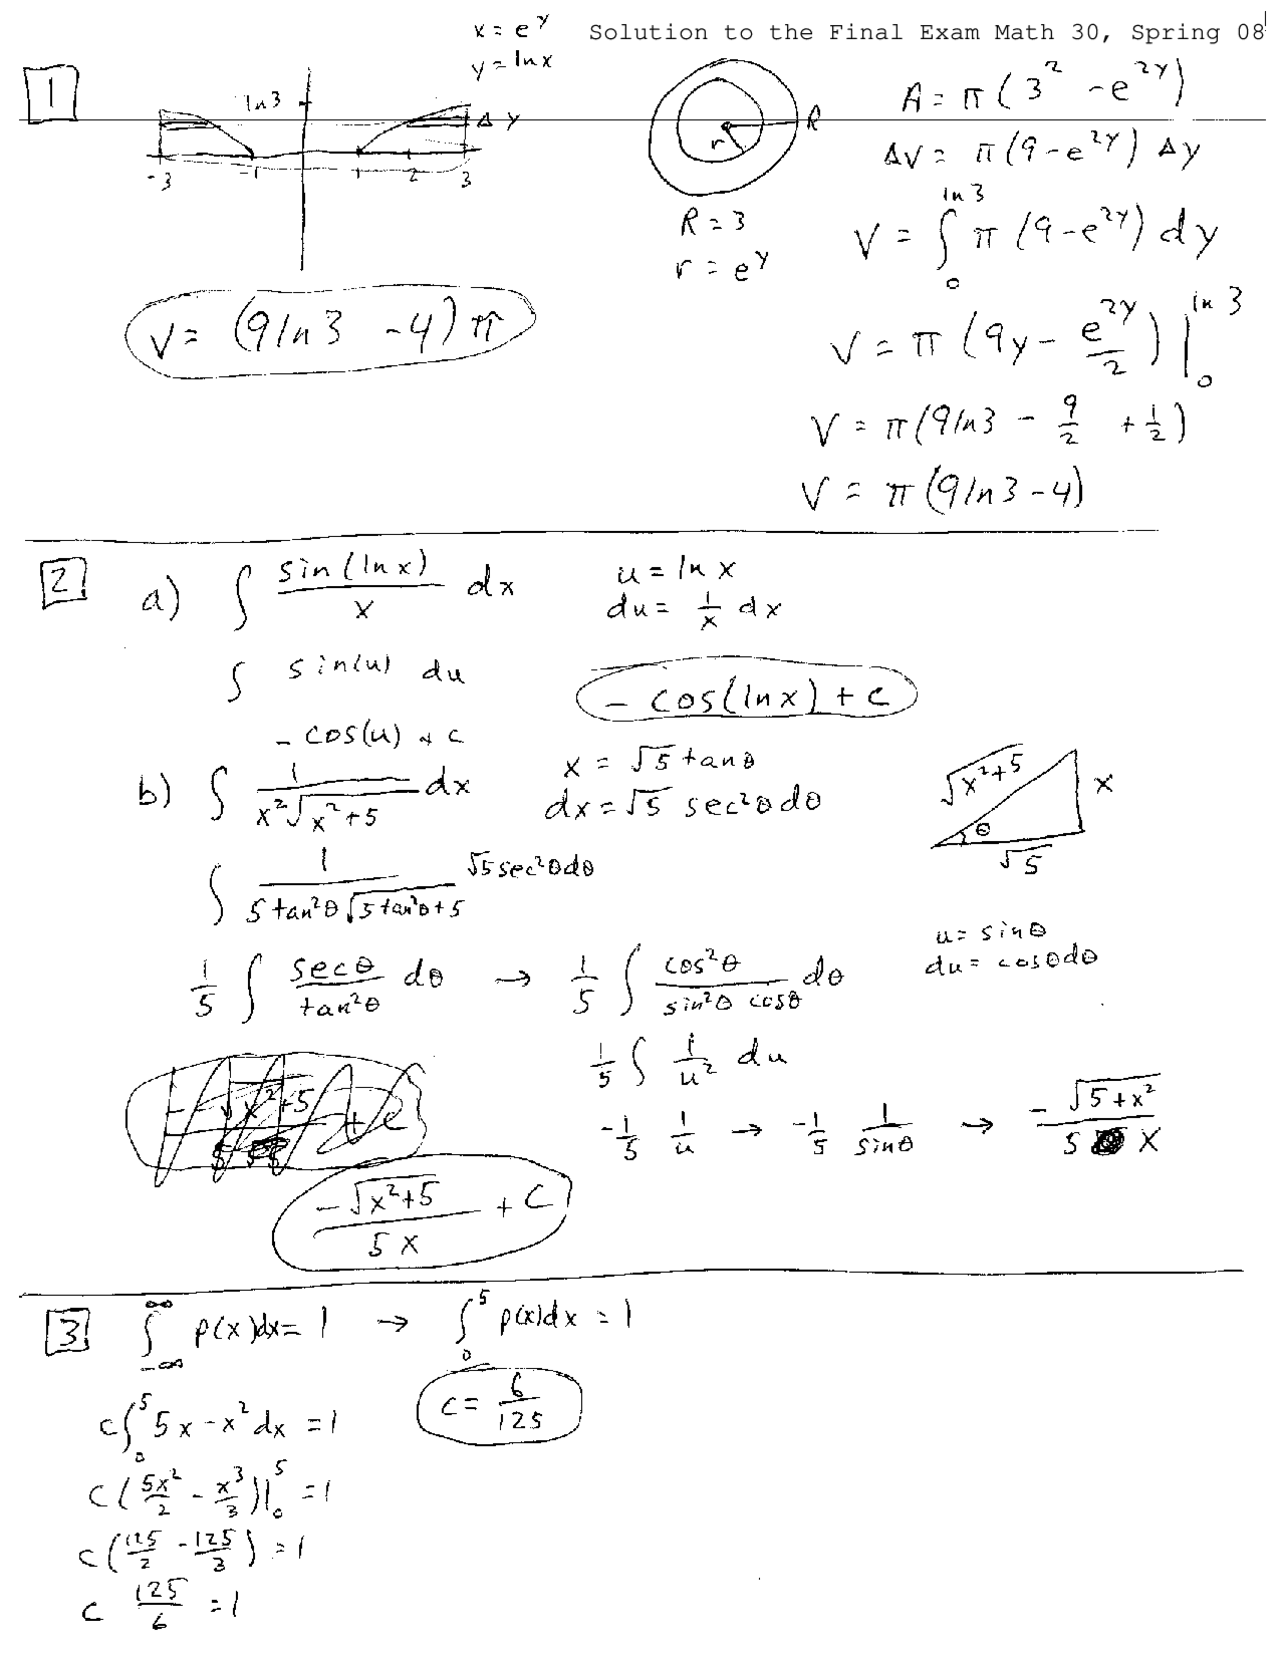 Solution to the Final Exam Math 30, Spring 08
x = e^y
y = ln x
1
ln 3
Δy
-3 -1 1 2 3
r R
R = 3
r = e^y
A = π(3² - e^{2y})
ΔV = π(9 - e^{2y}) Δy
V = ∫_0^{ln 3} π(9 - e^{2y}) dy
V = π(9y - e^{2y}/2)|_0^{ln 3}
V = π(9 ln 3 - 9/2 + 1/2)
V = π(9 ln 3 - 4)
V = (9 ln 3 - 4)π
2
a) ∫ sin(ln x)/x dx
u = ln x
du = 1/x dx
∫ sin(u) du
- cos(u) + c
- cos(ln x) + c
b) ∫ 1/(x²√(x²+5)) dx
x = √5 tanθ
dx = √5 sec²θ dθ
√(x²+5)
x
θ
√5
∫ 1/(5 tan²θ √(5tan²θ+5)) √5 sec²θ dθ
1/5 ∫ secθ/tan²θ dθ → 1/5 ∫ cos²θ/(sin²θ cosθ) dθ
u = sinθ
du = cosθ dθ
1/5 ∫ 1/u² du
-1/5 1/u → -1/5 1/sinθ → -√(5+x²)/(5 x)
-√(x²+5)/(5x) + C
3
∫_{-∞}^{∞} p(x)dx = 1 → ∫_0^5 p(x)dx = 1
c∫_0^5 5x - x² dx = 1
c = 6/125
c(5x²/2 - x³/3)|_0^5 = 1
c(125/2 - 125/3) = 1
c 125/6 = 1